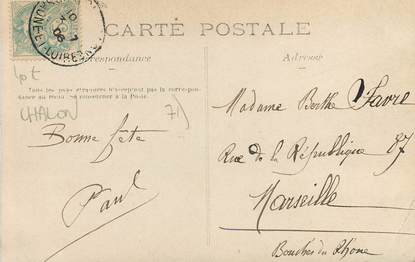 CARTE POSTALE
Correspondance
Adresse
Tous les pays étrangers n'acceptent pas la correspon-
dance au recto, se renseigner à la Poste.
CHALON
71)
Bonne fête
Paul
Madame Berthe Favre
Rue de la République 87
Marseille
Bouches du Rhône